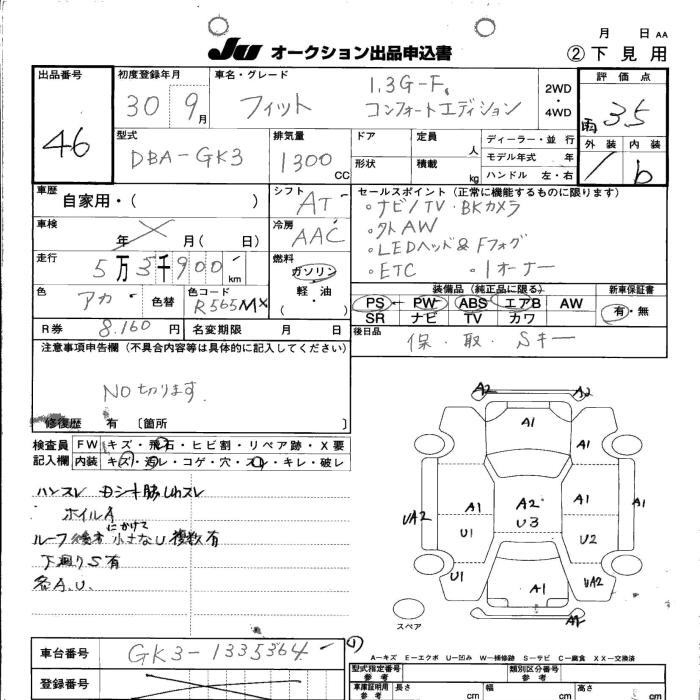 月 日 AA
JU オークション出品申込書 ②下見用
出品番号 46
初度登録年月 30 9月
車名・グレード フィット 1.3G-F. コンフォートエディション
2WD・4WD
評価点 雨 3.5
外装 内装 b
型式 DBA-GK3
排気量 1300 CC
ドア 定員 人
形状 積載 kg
ディーラー・並行
モデル年式 年
ハンドル 左・右
車歴 自家用・( )
シフト AT
セールスポイント(正常に機能するものに限ります)
。ナビ/TV・BKカメラ
。外AW
。LEDヘッド&Fフォグ
。ETC 。1オーナー
車検 年 月( 日)
冷房 AAC
走行 5万3千900 km
燃料 ガソリン 軽・油 ( )
色 アカ 色替
色コード R565MX
装備品(純正品に限る) 新車保証書
PS PW ABS エアB AW 有・無
SR ナビ TV カワ
R券 8.160円 名変期限 月 日
後日品 保・取・Sキー
注意事項申告欄(不具合内容等は具体的に記入してください)
NO切ります.
修復歴 有 〔箇所 〕
検査員 FW キズ・飛石・ヒビ割・リペア跡・X要
記入欄 内装 キズ・汚レ・コゲ・穴・スレ・キレ・破レ
ハンスレ
ホイルA
ルーフ後方にかけて小さなU複数有
下廻りS有
各A.U.
A2 A2
A1
A1 A2 A1 A1
UA2 U3
U1 U2
U1 A1 UA2
A2
スペア
車台番号 GK3-1335364
A-キズ E-エクボ U-凹み W-補修跡 S-サビ C-腐食 XX-交換済
型式指定番号 参考 類別区分番号 参考
登録番号
車庫証明用 参考 長さ cm 幅 cm 高さ cm